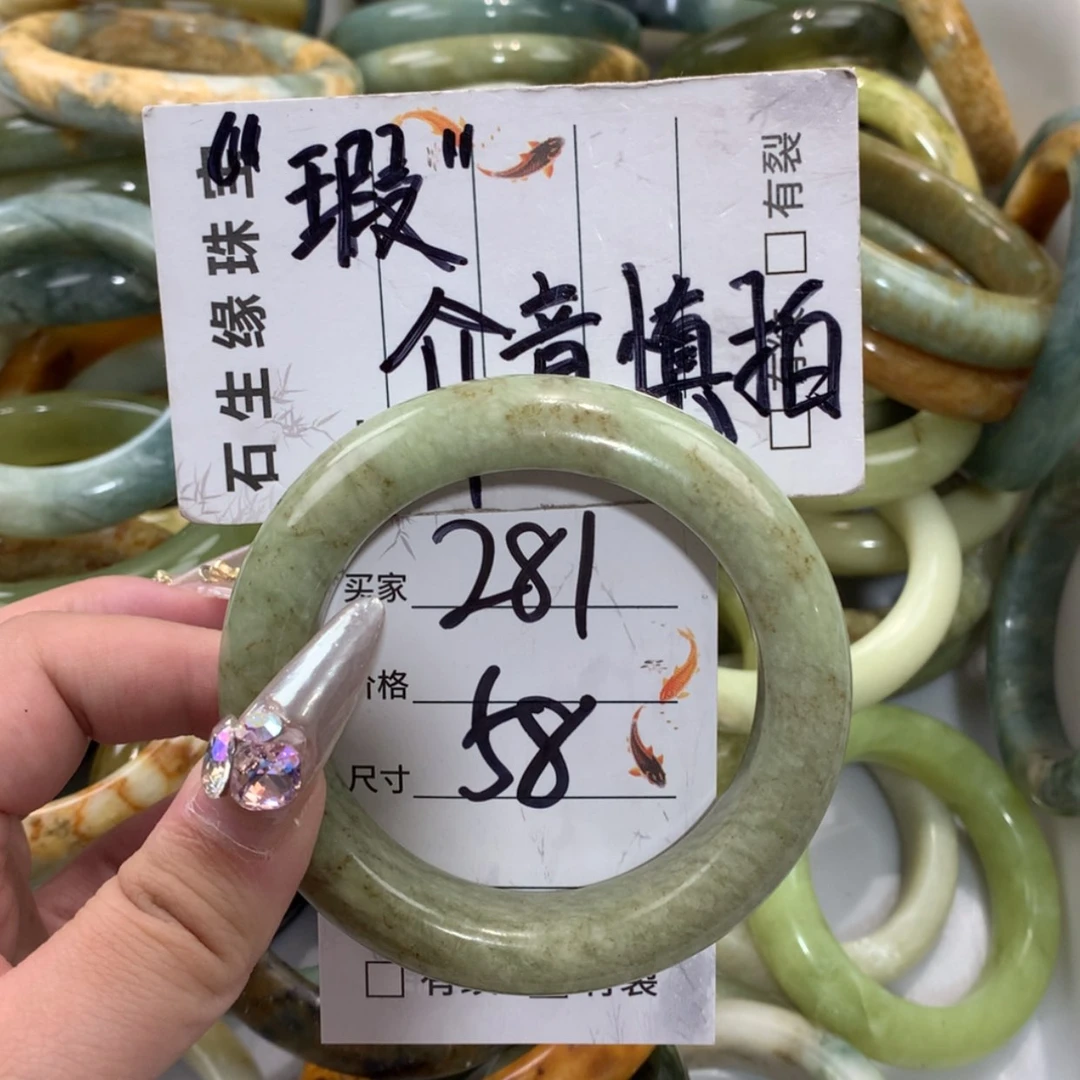 "瑕"
介意慎拍
石生缘珠宝
有裂
买家 281
价格
尺寸 58